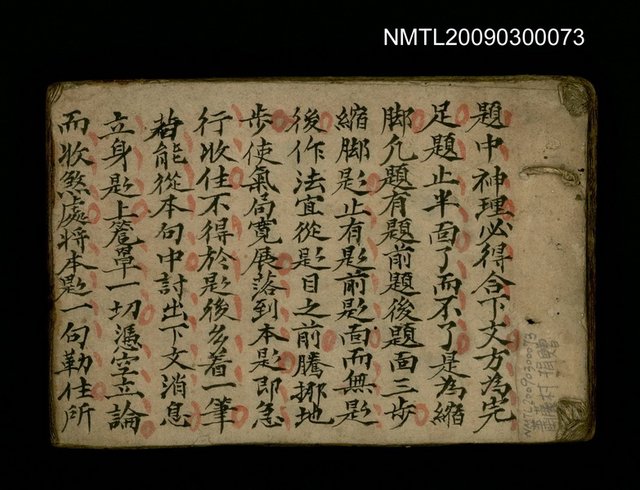 NMTL20090300073
題中神理必得合下文方為完
足題止半面了而不了是為縮
脚凡題有題前題後題面三步
縮脚題止有題前題面而無題
後作法宜從題目之前騰挪地
步使氣局寬展落到本題即急
行收住不得於題後多着一筆
若能從本句中討出下文消息
立身題上籠罩一切憑空立論
而收煞處將本題一句勒住所
NMTL20090300073